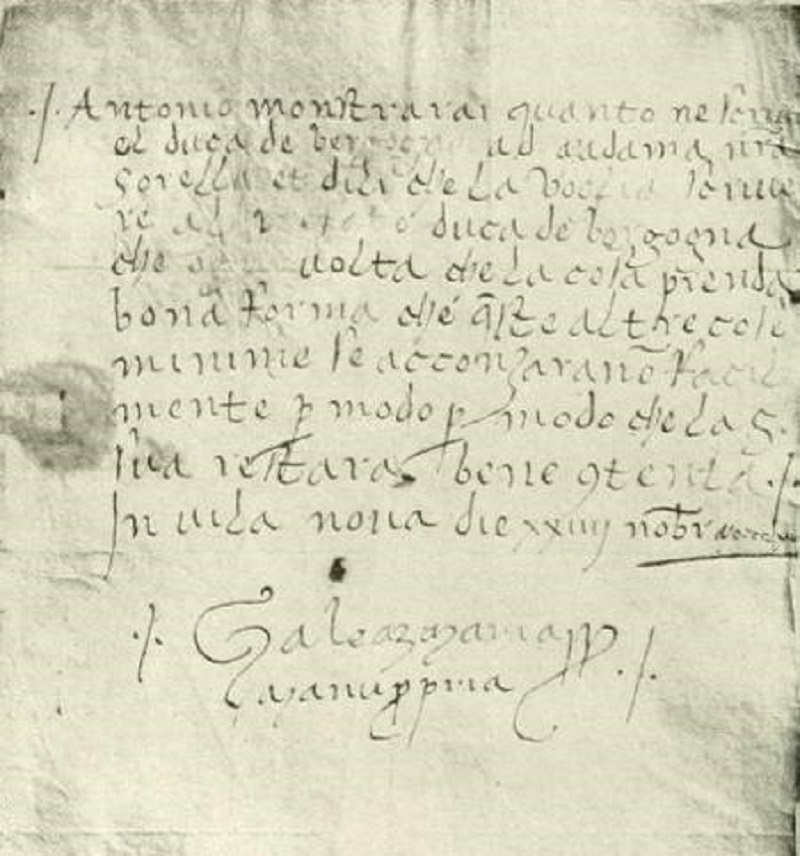 ./. Antonio monstrarai quanto ne
el duca de ad madama nrã
sorella et dili che la voglia
re al duca de bergogna
che volta che la cosa prenda
bona forma che q̃ste altre cose
minime se acconzaranō facil
mente p modo p modo che la S.
sua restara bene 9tenta ./.
In vila nova die xxiiij nobr
./. Galeaz maria
manu ppria ./.